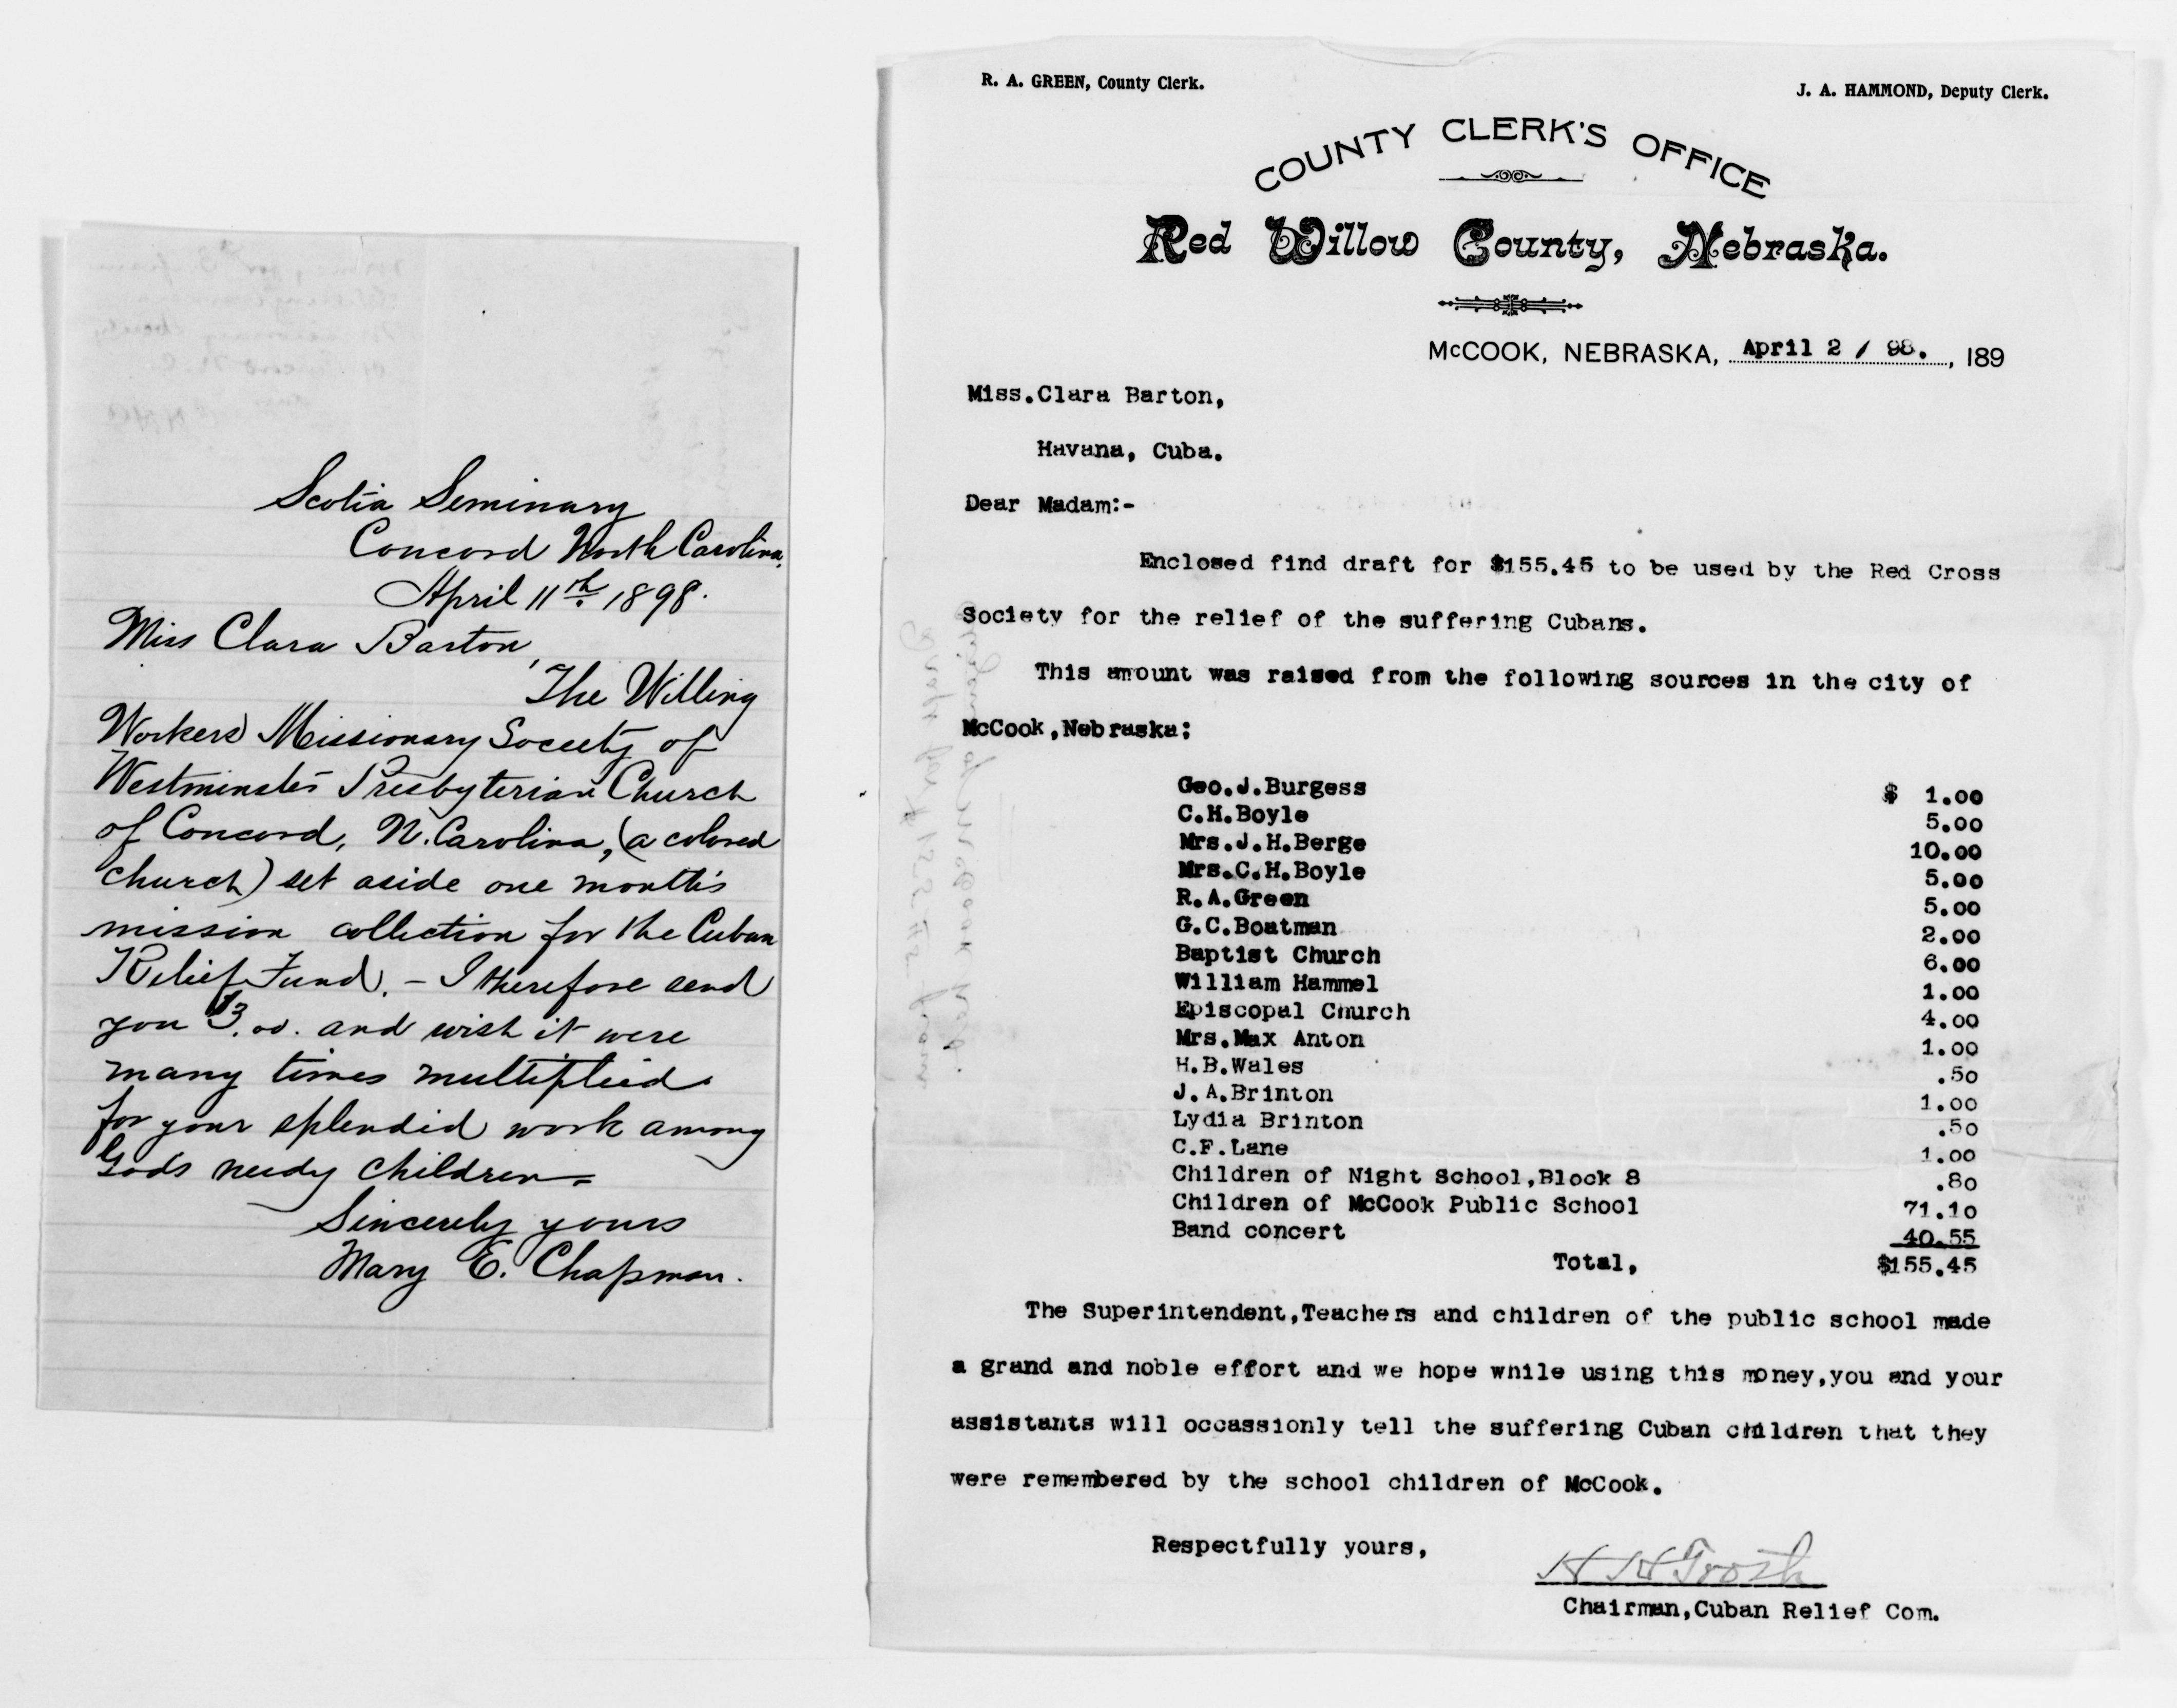 Scotia Seminary
Concord North Carolina,
April 11th. 1898.
Miss Clara Barton,
The Willing
Workers Missionary Society of
Westminster Presbyterian Church
of Concord, N. Carolina, (a colored
church) set aside one month's
mission collection for the Cuban
Relief Fund. - I therefore send
you $3.00. and wish it were
many times multiplied
for your splendid work among
God's needy children.
Sincerely yours
Mary E. Chapman.
R. A. GREEN, County Clerk.
J. A. HAMMOND, Deputy Clerk.
COUNTY CLERK'S OFFICE
Red Willow County, Nebraska.
McCOOK, NEBRASKA, April 2 / 98. , 189
Miss.Clara Barton,
Havana, Cuba.
Dear Madam:-
Enclosed find draft for $155.45 to be used by the Red Cross
Society for the relief of the suffering Cubans.
This amount was raised from the following sources in the city of
McCook,Nebraska;
Geo.J.Burgess $ 1.00
C.H.Boyle 5.00
Mrs.J.H.Berge 10.00
Mrs.C.H.Boyle 5.00
R.A.Green 5.00
G.C.Boatman 2.00
Baptist Church 6.00
William Hammel 1.00
Episcopal Church 4.00
Mrs.Max Anton 1.00
H.B.Wales .50
J.A.Brinton 1.00
Lydia Brinton .50
C.F.Lane 1.00
Children of Night School,Block 8 .80
Children of McCook Public School 71.10
Band concert 40.55
Total, $155.45
The Superintendent,Teachers and children of the public school made
a grand and noble effort and we hope while using this money,you and your
assistants will occassionly tell the suffering Cuban children that they
were remembered by the school children of McCook.
Respectfully yours,
H H Troth
Chairman,Cuban Relief Com.